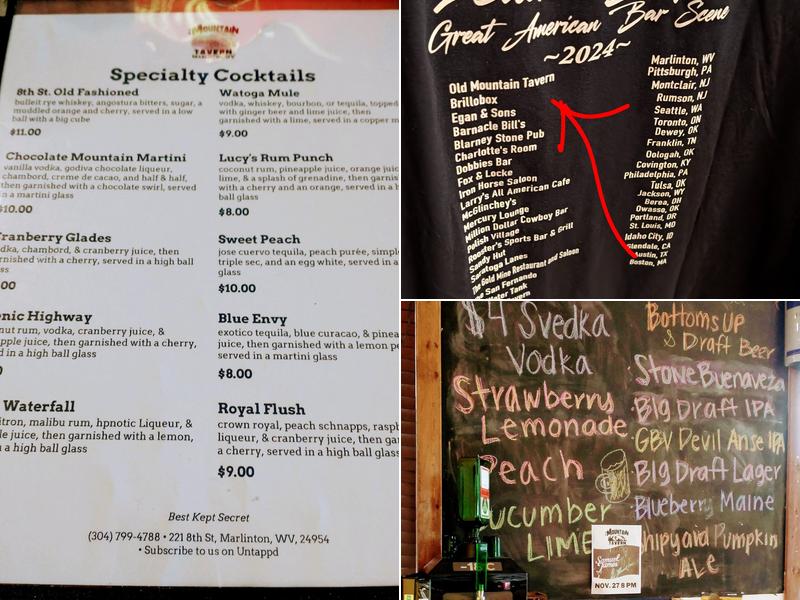 MOUNTAIN
TAVERN
MARLINTON, WV
Specialty Cocktails
8th St. Old Fashioned
bulleit rye whiskey, angostura bitters, sugar, a
muddled orange and cherry, served in a low
ball with a big cube
$11.00
Chocolate Mountain Martini
vanilla vodka, godiva chocolate liqueur,
chambord, creme de cacao, and half & half,
then garnished with a chocolate swirl, served
in a martini glass
$10.00
Cranberry Glades
vodka, chambord, & cranberry juice, then
garnished with a cherry, served in a high ball
Highway
rum, vodka, cranberry juice, &
juice, then garnished with a cherry,
in a high ball glass
Waterfall
malibu rum, hpnotic Liqueur, &
juice, then garnished with a lemon,
a high ball glass
Watoga Mule
vodka, whiskey, bourbon, or tequila, topped
with ginger beer and lime juice, then
garnished with a lime, served in a copper
$9.00
Lucy's Rum Punch
coconut rum, pineapple juice, orange
lime, & a splash of grenadine, then
with a cherry and an orange, served in a
ball glass
$8.00
Sweet Peach
jose cuervo tequila, peach purée,
triple sec, and an egg white, served in a
glass
$10.00
Blue Envy
exotico tequila, blue curacao, &
juice, then garnished with a lemon
served in a martini glass
$8.00
Royal Flush
crown royal, peach schnapps,
liqueur, & cranberry juice, then
a cherry, served in a high ball glass
$9.00
Best Kept Secret
(304) 799-4788 • 221 8th St, Marlinton, WV, 24954
• Subscribe to us on Untappd
Great American Bar Scene
~2024~
Old Mountain Tavern
Brillobox
Egan & Sons
Barnacle Bill's
Blarney Stone Pub
Charlotte's Room
Dobbies Bar
Fox & Locke
Iron Horse Saloon
Larry's All American Cafe
McGlinchey's
Mercury Lounge
Million Dollar Cowboy Bar
Polish Village
Rooster's Sports Bar & Grill
Sandy Hut
Saratoga Lanes
The Gold Mine Restaurant and Saloon
San Fernando
Tank
Marlinton, WV
Pittsburgh, PA
Montclair, NJ
Rumson, NJ
Seattle, WA
Toronto, ON
Dewey, OK
Franklin, TN
Oologah, OK
Covington, KY
Philadelphia, PA
Tulsa, OK
Jackson, WY
Berea, OH
Owasso, OK
Portland, OR
St. Louis, MO
Idaho City, ID
Glendale, CA
Austin, TX
Boston, MA
$4 Svedka
Vodka
Strawberry
Lemonade
Peach
Cucumber
LIME
Bottoms Up
$ Draft Beer
Stone Buenaveza
Big Draft IPA
GBV Devil Anse IPA
Big Draft Lager
Blueberry Maine
Shipyard Pumpkin
ALe
MOUNTAIN
TAVERN
Samuel
James
NOV. 27 8 PM